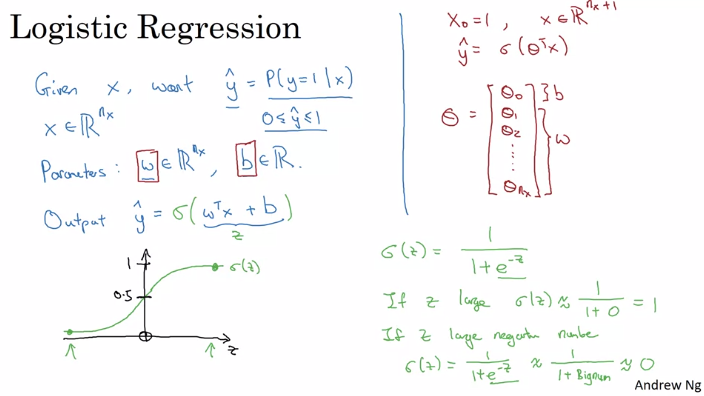 Logistic Regression
Given x, want ŷ = P(y=1|x)
x ∈ ℝ^{n_x}
0 ≤ ŷ ≤ 1
Parameters: w ∈ ℝ^{n_x}, b ∈ ℝ.
Output ŷ = σ(wᵀx + b)
z
1
σ(z)
0.5
z
x₀ = 1, x ∈ ℝ^{n_x+1}
ŷ = σ(θᵀx)
θ = [θ₀ θ₁ θ₂ ⋮ θ_{n_x}] } b } w
σ(z) = 1 / (1 + e^{-z})
If z large σ(z) ≈ 1 / (1 + 0) = 1
If z large negative number
σ(z) = 1 / (1 + e^{-z}) ≈ 1 / (1 + Bignum) ≈ 0
Andrew Ng